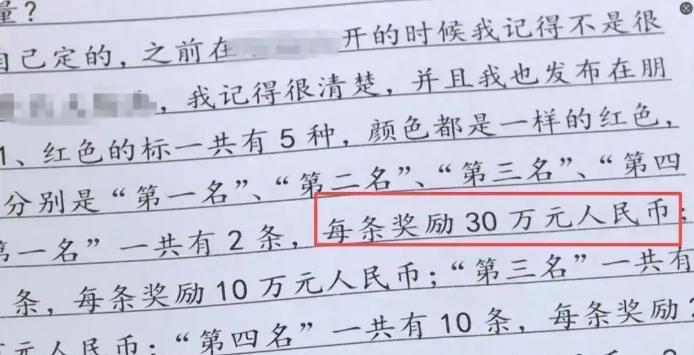 量？
自己定的，之前在 开的时候我记得不是很
，我记得很清楚，并且我也发布在朋
1、红色的标一共有 5 种，颜色都是一样的红色，
分别是“第一名”、“第二名”、“第三名”、“第四
第一名”一共有 2 条，每条奖励 30 万元人民币；
条，每条奖励 10 万元人民币；“第三名”一共有
元人民币；“第四名”一共有 10 条，每条奖励